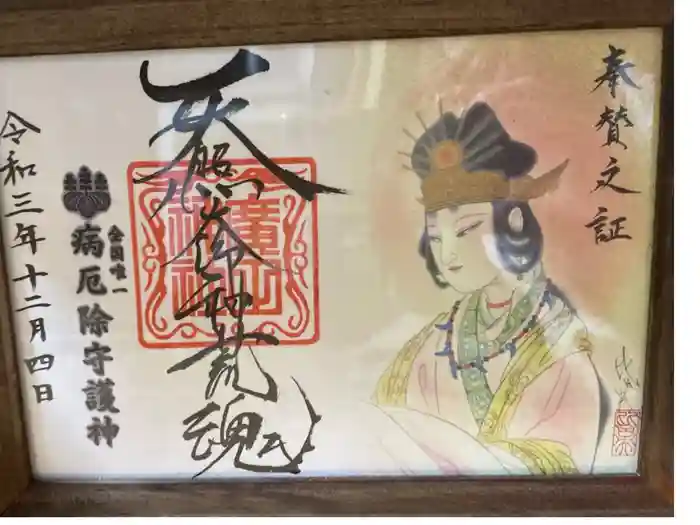 奉賛之証
天照大御神荒魂
廣田神社
全国唯一
病厄除守護神
令和三年十二月四日